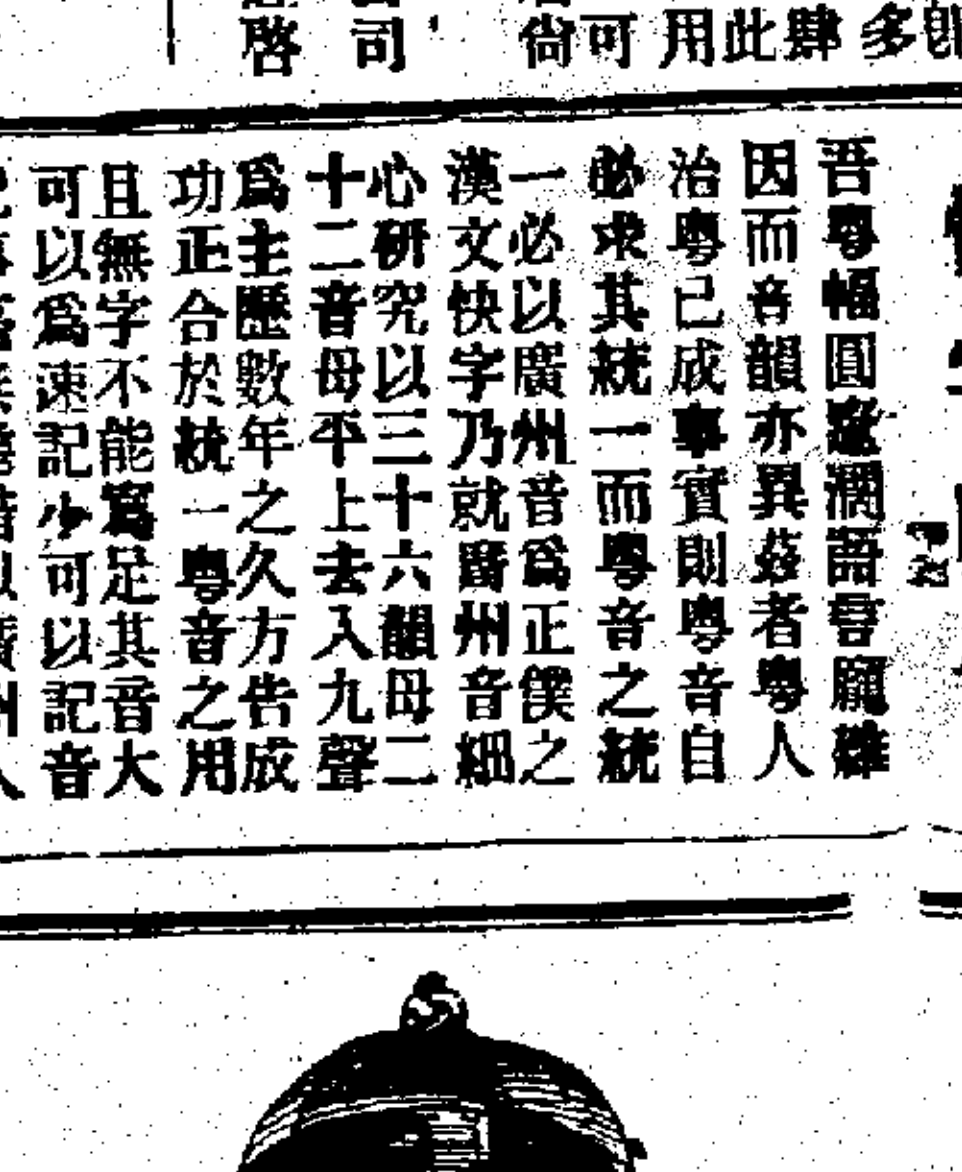 即
多
肆
此
用
可
尙
司
啓
吾粤幅圓遼濶語言龐雜
因而音韻亦異玆者粤人
治粤已成事實則粤音自
必求其統一而粤音之統
一必以廣州音爲正僕之
漢文快字乃就廣州音細
心硏究以三十六韻母二
十二音母平上去入九聲
爲主歷數年之久方告成
功正合於統一粤音之用
且無字不能寫足其音大
可以爲速記少可以記音